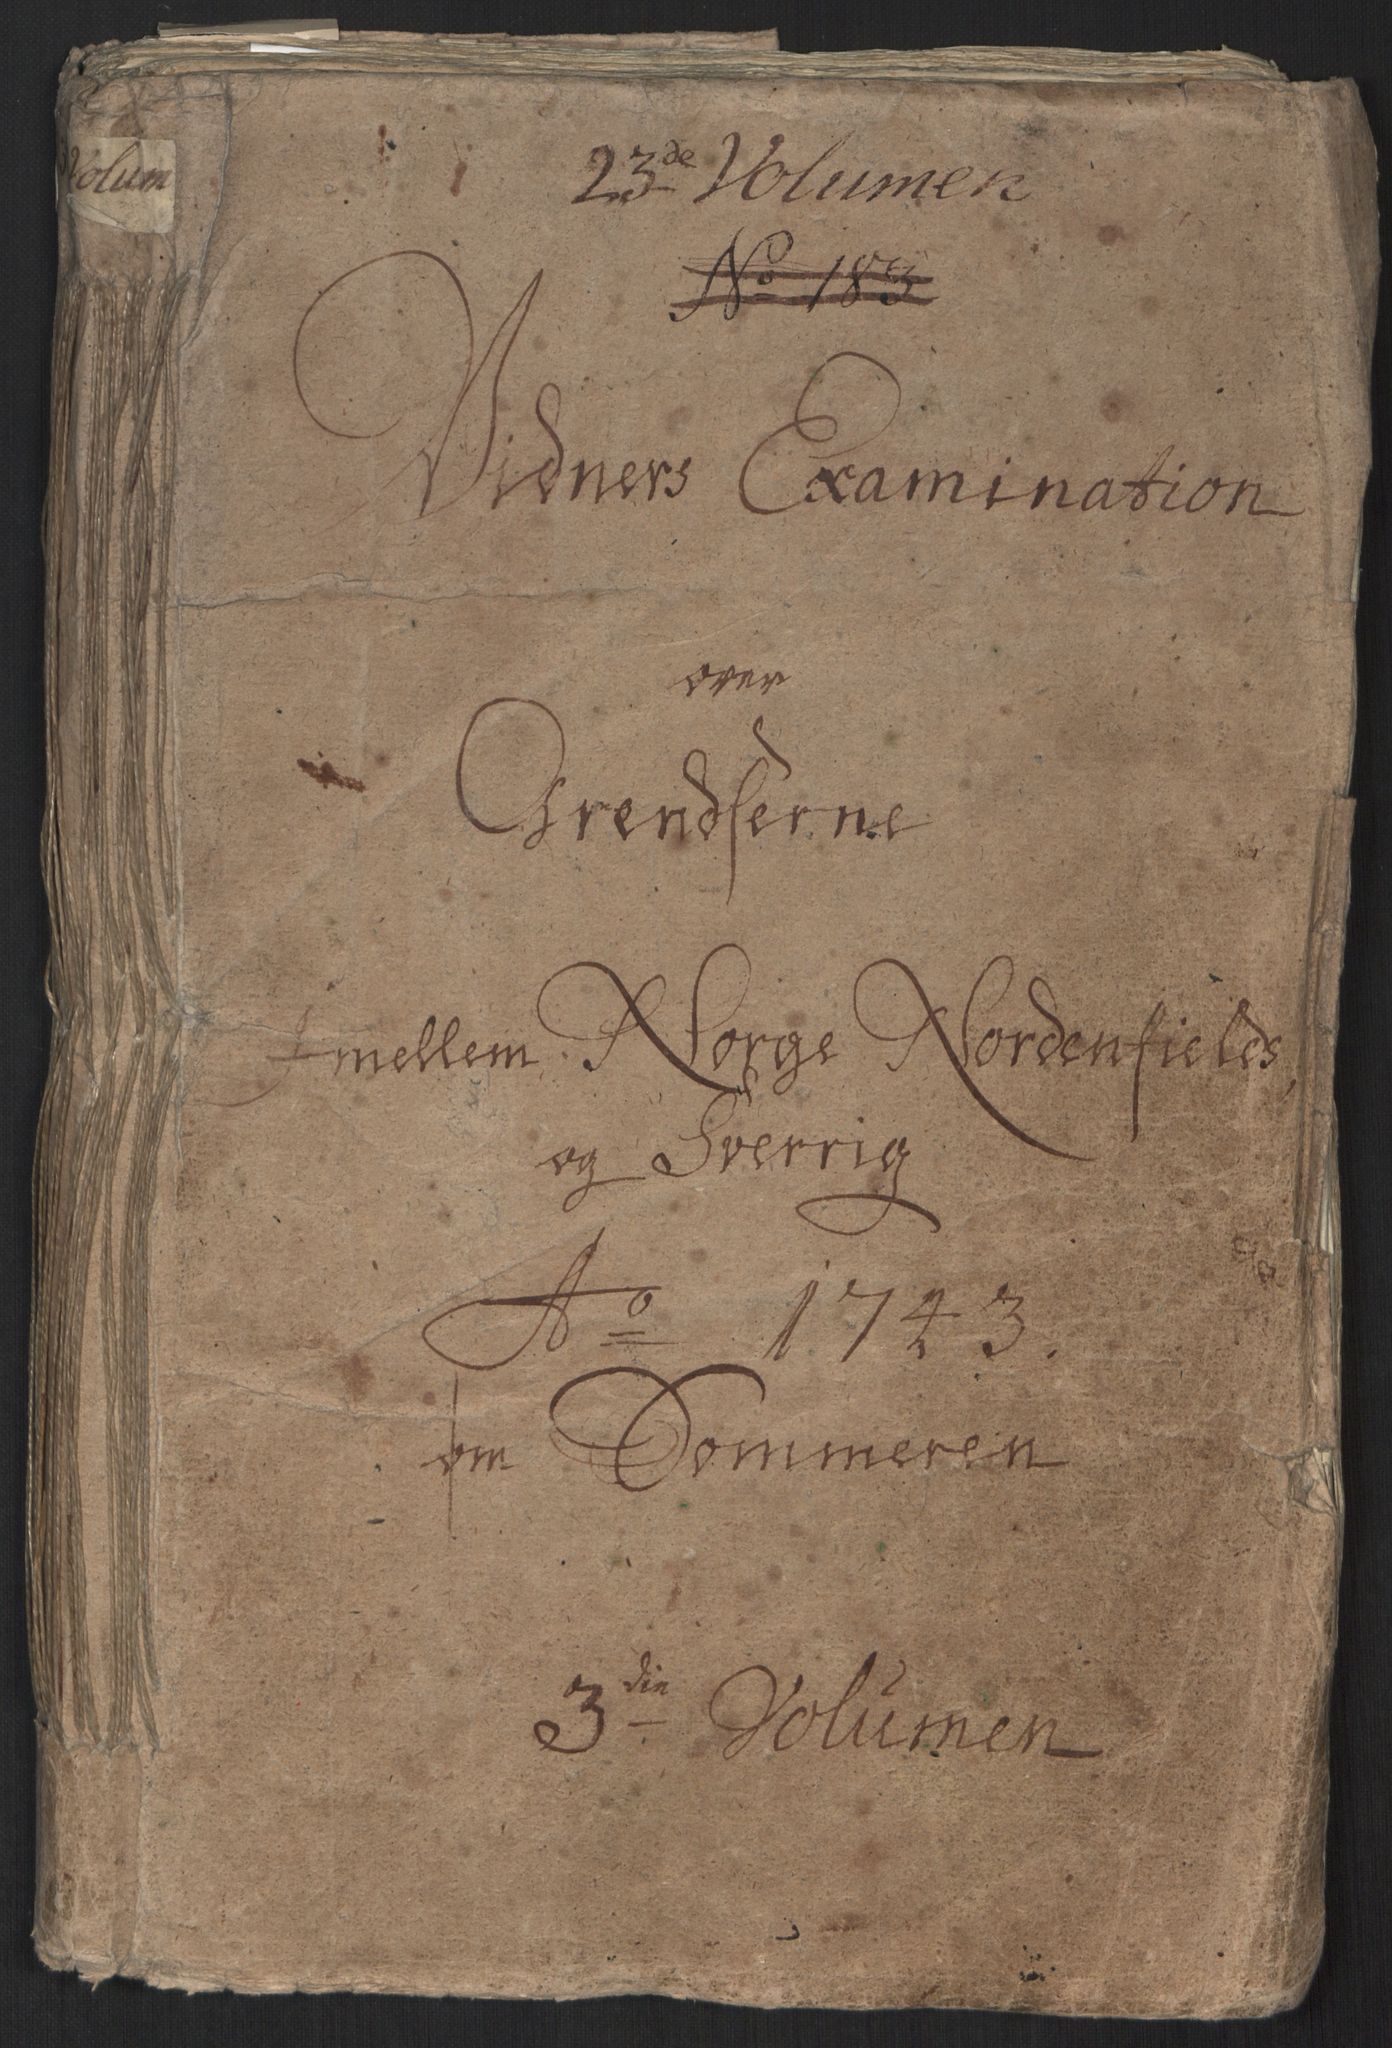 Volum
23de Volumen
No 183
Vidners Examination
over
Grendserne
Imellem Norge Nordenfields,
og Sverrig
Ao 1743.
om Sommeren
3die Volumen